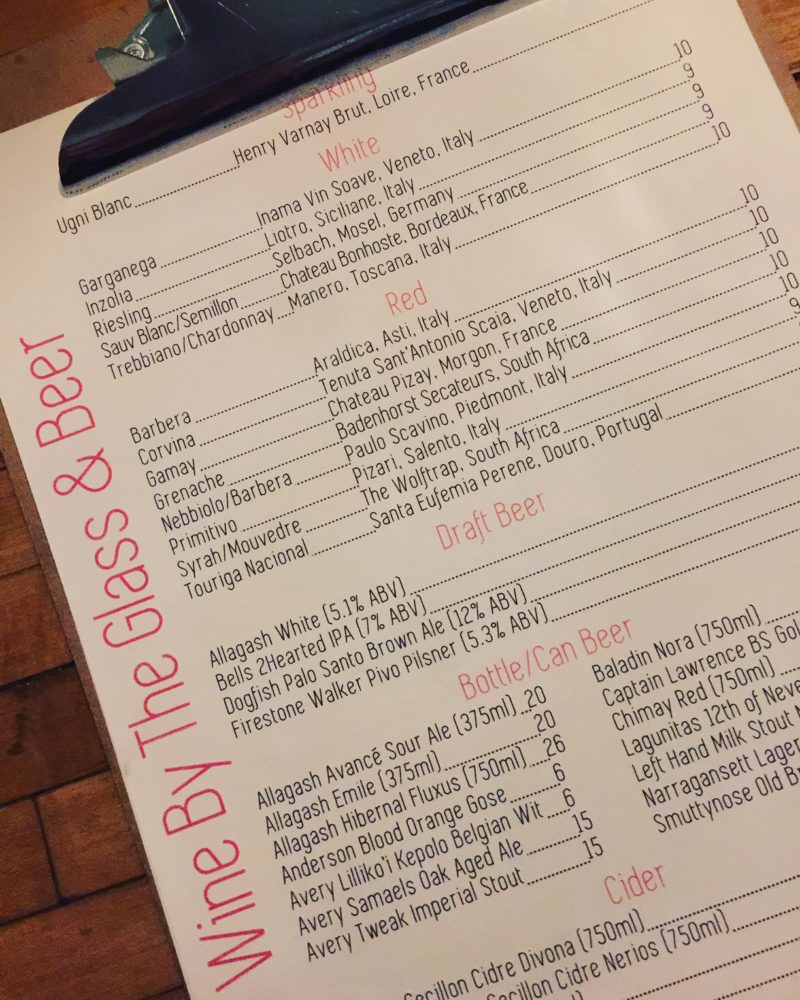 Wine By The Glass & Beer
Sparkling
Ugni Blanc ........ Henry Varnay Brut, Loire, France ........
White
Garganega ........ Inama Vin Soave, Veneto, Italy ........ 10
Inzolia ........ Liotro, Siciliane, Italy ........ 9
Riesling ........ Selbach, Mosel, Germany ........ 9
Sauv Blanc/Semillon ........ Chateau Bonhoste, Bordeaux, France ........ 9
Trebbiano/Chardonnay .... Manero, Toscana, Italy ........ 10
Red
Barbera ........ Araldica, Asti, Italy ........ 10
Corvina ........ Tenuta Sant'Antonio Scaia, Veneto, Italy ........ 10
Gamay ........ Chateau Pizay, Morgon, France ........ 10
Grenache ........ Badenhorst Secateurs, South Africa ........ 10
Nebbiolo/Barbera ........ Paulo Scavino, Piedmont, Italy ........ 10
Primitivo ........ Pizari, Salento, Italy ........ 9
Syrah/Mouvedre ........ The Wolftrap, South Africa ........
Touriga Nacional ........ Santa Eufemia Perene, Douro, Portugal ........
Draft Beer
Allagash White (5.1% ABV) ........
Bells 2Hearted IPA (7% ABV) ........
Dogfish Palo Santo Brown Ale (12% ABV) ........
Firestone Walker Pivo Pilsner (5.3% ABV) ........
Bottle/Can Beer
Allagash Avancé Sour Ale (375ml) .. 20
Allagash Emile (375ml) ........ 20
Allagash Hibernal Fluxus (750ml) ... 26
Anderson Blood Orange Gose ........ 6
Avery Lilliko'i Kepolo Belgian Wit ... 6
Avery Samaels Oak Aged Ale ........ 15
Avery Tweak Imperial Stout ........ 15
Baladin Nora (750ml) ........
Captain Lawrence BS Gol
Chimay Red (750ml) ........
Lagunitas 12th of Neve
Left Hand Milk Stout
Narragansett Lager
Smuttynose Old Br
Cider
Cidre Divona (750ml) ........
Cidre Nerios (750ml) ........